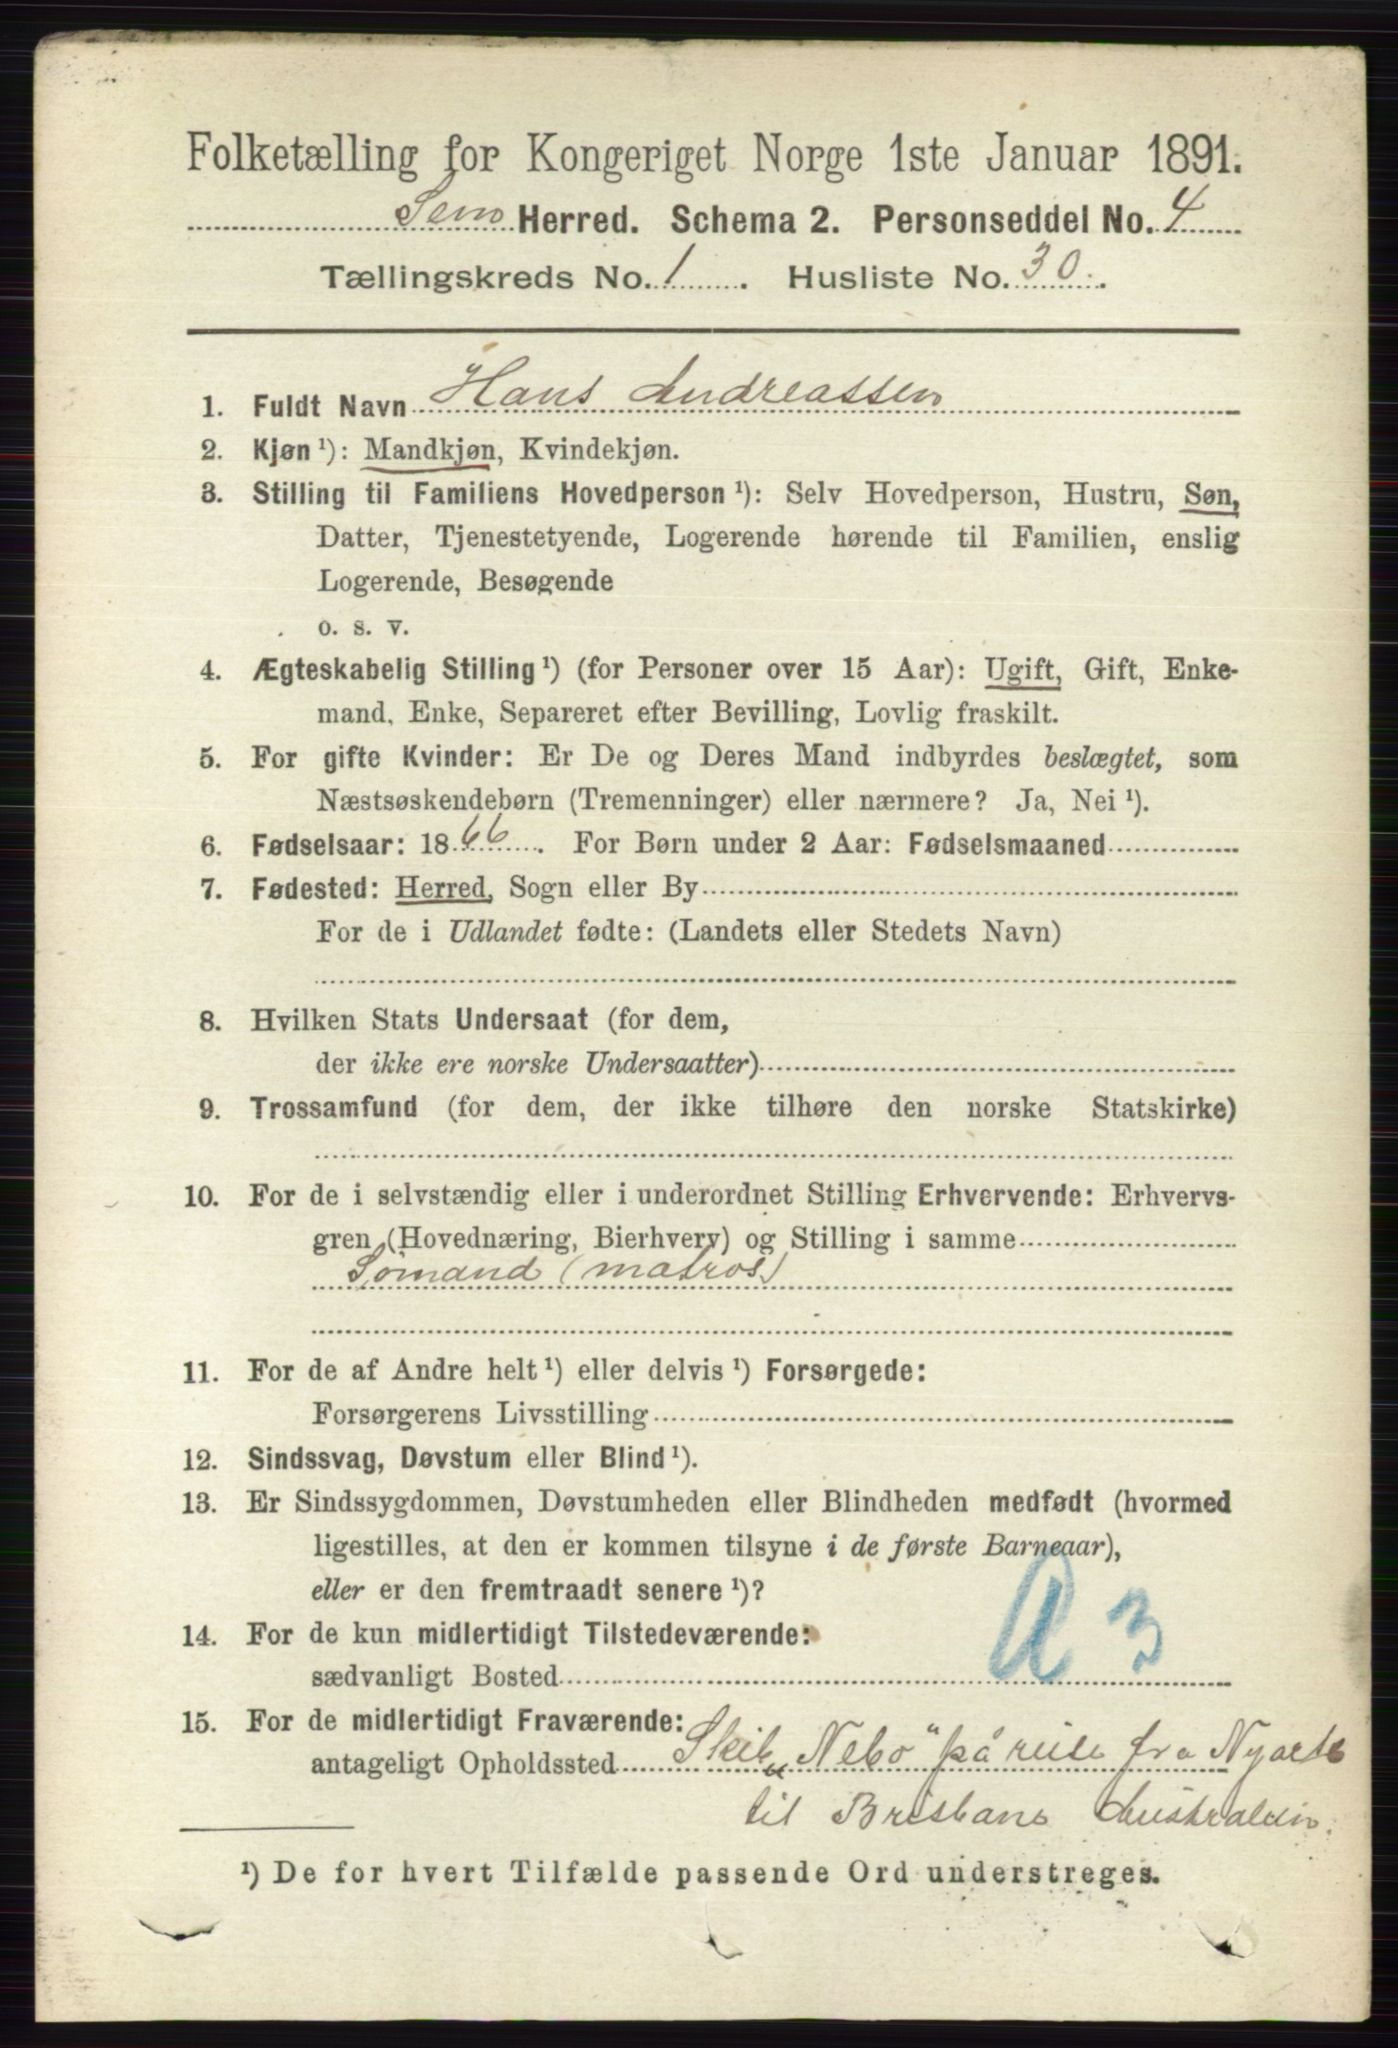 Folketælling for Kongeriget Norge 1ste Januar 1891.
Sem Herred. Schema 2. Personseddel No. 4
Tællingskreds No. 1. Husliste No. 30.
1. Fuldt Navn Hans Andreassen
2. Kjøn ¹): Mandkjøn, Kvindekjøn.
3. Stilling til Familiens Hovedperson ¹): Selv Hovedperson, Hustru, Søn,
Datter, Tjenestetyende, Logerende hørende til Familien, enslig
Logerende, Besøgende
o. s. v.
4. Ægteskabelig Stilling ¹) (for Personer over 15 Aar): Ugift, Gift, Enke-
mand, Enke, Separeret efter Bevilling, Lovlig fraskilt.
5. For gifte Kvinder: Er De og Deres Mand indbyrdes beslægtet, som
Næstsøskendebørn (Tremenninger) eller nærmere? Ja, Nei ¹).
6. Fødselsaar: 1866. For Børn under 2 Aar: Fødselsmaaned
7. Fødested: Herred, Sogn eller By
For de i Udlandet fødte: (Landets eller Stedets Navn)
8. Hvilken Stats Undersaat (for dem,
der ikke ere norske Undersaatter)
9. Trossamfund (for dem, der ikke tilhøre den norske Statskirke)
10. For de i selvstændig eller i underordnet Stilling Erhvervende: Erhvervs-
gren (Hovednæring, Bierhverv) og Stilling i samme
Sømand (matros)
11. For de af Andre helt ¹) eller delvis ¹) Forsørgede:
Forsørgerens Livsstilling
12. Sindssvag, Døvstum eller Blind ¹).
13. Er Sindssygdommen, Døvstumheden eller Blindheden medfødt (hvormed
ligestilles, at den er kommen tilsyne i de første Barneaar),
eller er den fremtraadt senere ¹)?
a 3
14. For de kun midlertidigt Tilstedeværende:
sædvanligt Bosted
15. For de midlertidigt Fraværende:
antageligt Opholdssted Skib „Nebo" på reise fra
til Brisbane Australien.
¹) De for hvert Tilfælde passende Ord understreges.